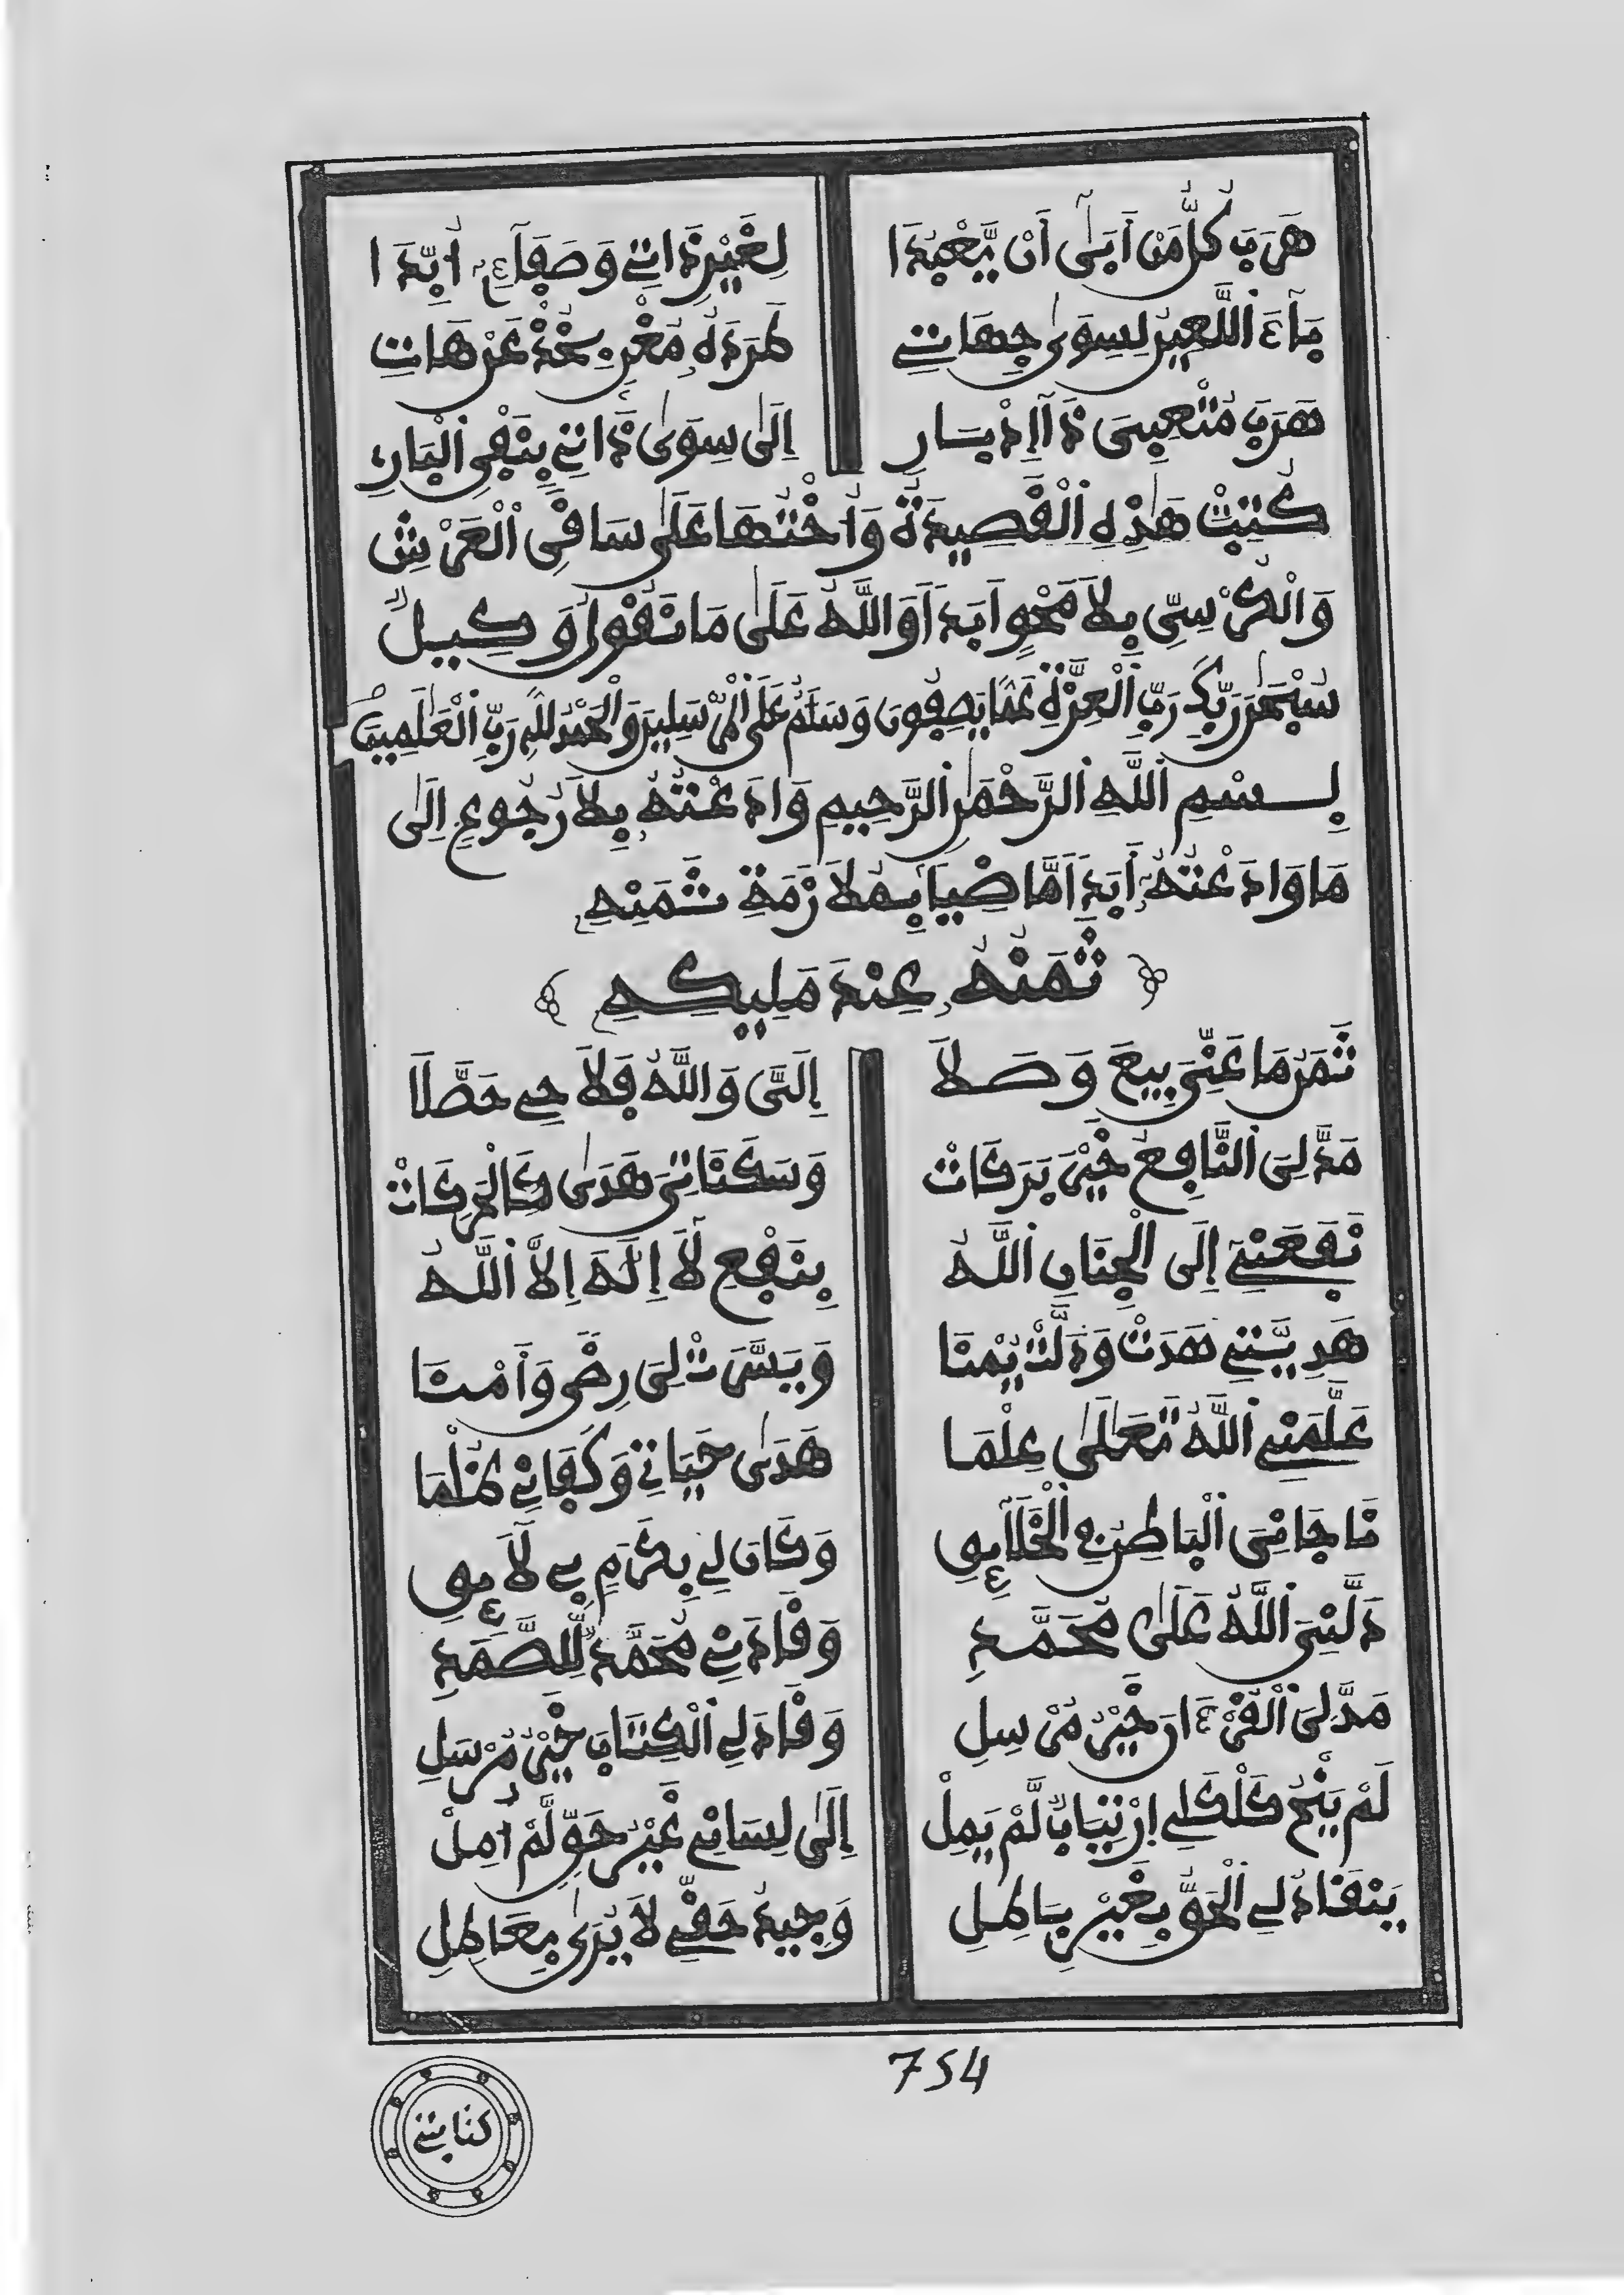 هَرَبَ كُلُّ مَنْ أَبَىٰ أَنْ يَّعْبُدَا لِغَيْرِ ذَاتِي وَصَفَآءِ أَبَدَا
بَآءَ اللَّعِينُ لِسِوَىٰ جِهَاتِي طَرَدَهُ مُغْنٍ عَنْ هَاتِ
هَرَبَ مُتْعِبِي ذَا إِدْبَارِ إِلَىٰ سِوَىٰ ذَاتِي بِنَفْيِ الْبَارِ
كُتِبَتْ هَٰذِهِ الْقَصِيدَةُ وَأُخْتُهَا عَلَىٰ سَاقِ الْعَرْشِ
وَالْكُرْسِيِّ بِلَا مَحْوٍ أَبَدًا وَاللَّهُ عَلَىٰ مَا نَقُولُ وَكِيلٌ
سُبْحَٰنَ رَبِّكَ رَبِّ الْعِزَّةِ عَمَّا يَصِفُونَ وَسَلَٰمٌ عَلَى الْمُرْسَلِينَ وَالْحَمْدُ لِلَّهِ رَبِّ الْعَٰلَمِينَ
بِسْمِ اللَّهِ الرَّحْمَٰنِ الرَّحِيمِ وَادَعْتُهُ بِلَا رُجُوعٍ إِلَىٰ
مَا وَادَعْتُهُ أَبَدًا مَّاضِيًا بِمُلَازَمَةِ ثَمَنِهِ
ثَمَنُهُ عِنْدَ مَلِيكِهِ
ثَمَنُ مَا عَنِّيَ بِيعَ وَصَلَا إِلَيَّ وَاللَّهُ فَلَاحِي حَصَّلَا
مَدَّ لِيَ النَّافِعُ خَيْرَ بَرَكَاتْ وَسَكَنَاتِي هَدَىٰ كَالْحَرَكَاتْ
نَفَعَنِي إِلَى الْجِنَانِ اللَّهُ بِنَفْعِ لَآ إِلَٰهَ إِلَّا اللَّهُ
هَدِيَّتِي هَدَتْ وَدَلَّتْ يُمْنَا وَيَسَّرَتْ لِيَ رِضًى وَأَمْنَا
عَلَّمَنِي اللَّهُ تَعَالَىٰ عِلْمَا هَدَىٰ حَيَاتِي وَكَفَانِي ظُلْمَا
نَاجَانِيَ الْبَاطِنُ فِي الْخَلَآئِقِ وَكَانَ لِي بِكَرَمٍ بِي لَآئِقِ
دَلَّنِيَ اللَّهُ عَلَىٰ مُحَمَّدِ وَقَادَنِي مُحَمَّدٌ لِّلصَّمَدِ
مَدَّ لِيَ الْقُرْءَانَ خَيْرُ مُرْسِلِ وَقَادَ لِي الْكِتَابَ خَيْرُ مُرْسَلِ
لَمْ يَنْحُ كَلْكَلِي ارْتِيَابٌ لَّمْ يَمِلْ إِلَىٰ لِسَانِي غَيْرُ حَقٍّ لَّمْ أَمِلْ
يَنْقَادُ لِي الْحَقُّ بِغَيْرِ بَاطِلِ وَجِيدُ حَقِّي لَا يُرَىٰ بِعَاطِلِ
754
كتابتي